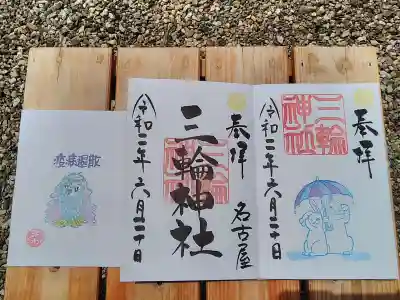 奉拝
三輪
神社
令和二年六月二十日
奉拝
名古屋
三輪神社
令和二年六月二十日
疫病退散